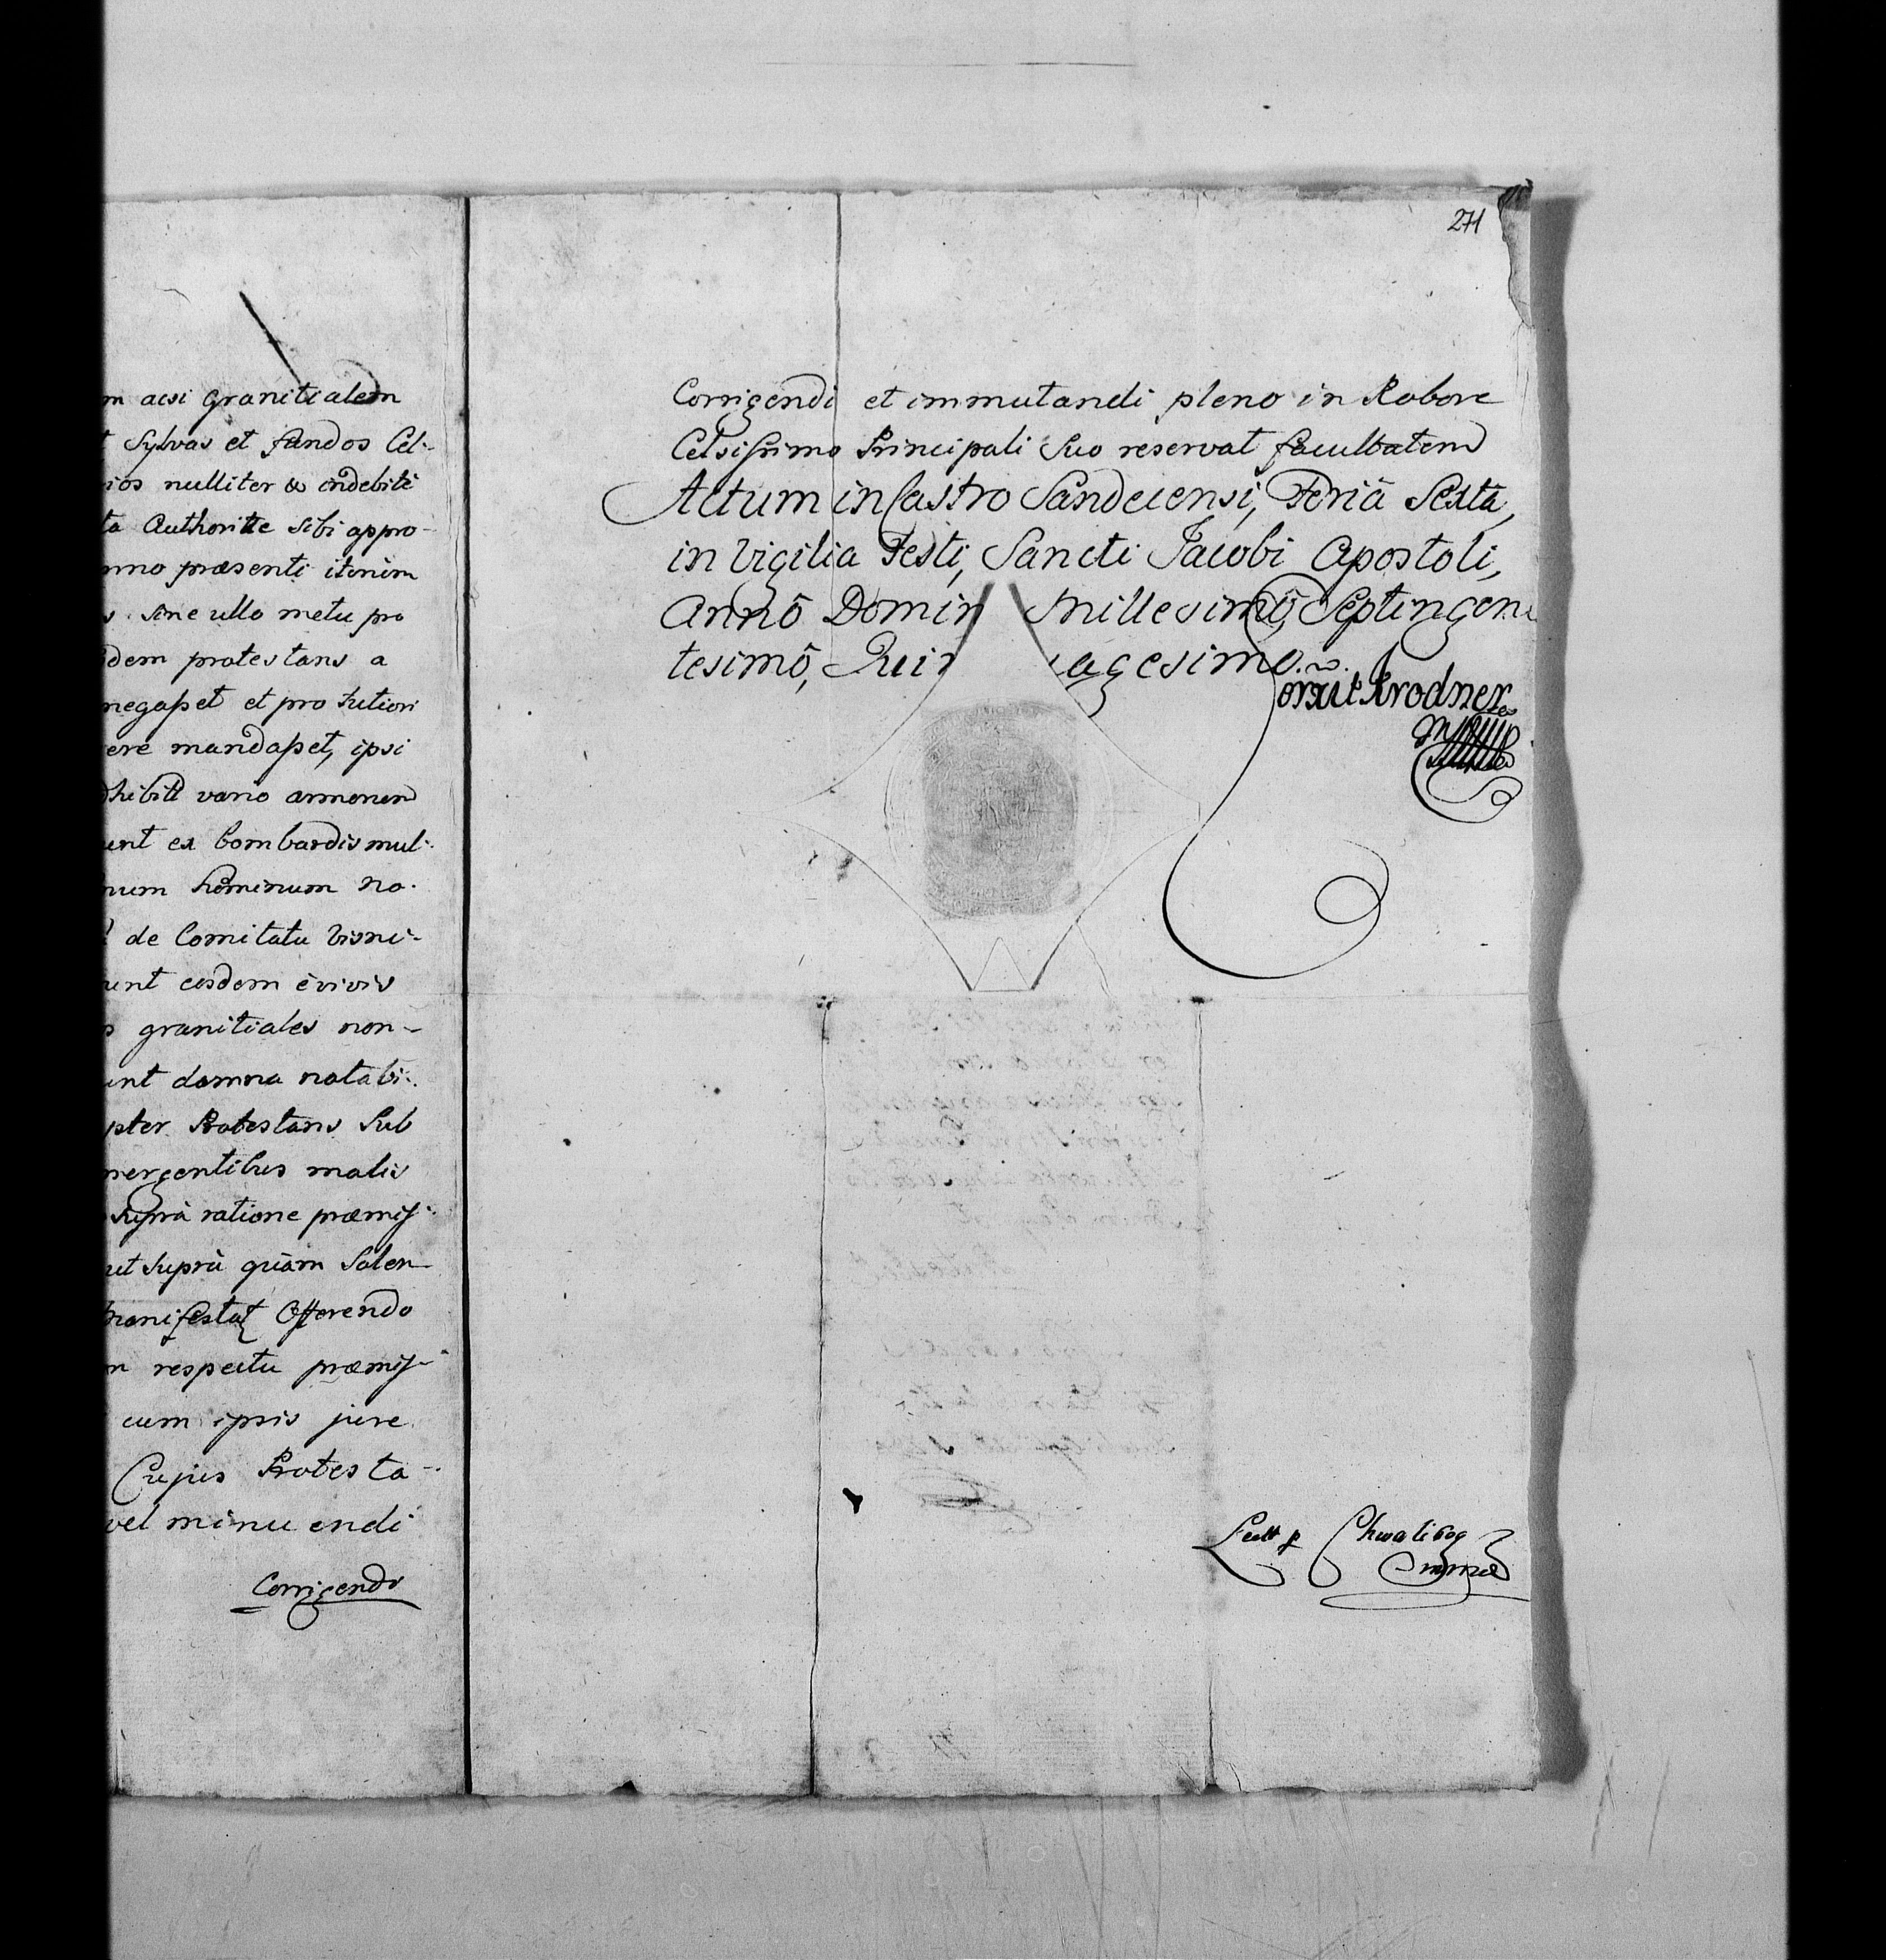 m acsi granitialem
t Sylvas et fundos Cel-
rios nulliter & indebite
ta Authoritte sibi appro-
nno præsenti itenim
s sine ullo metu pro
dem protestans a
negasset et pro tutiori
ere mandasset, ipsi
dhibitt vario armonem
unt ex bombardis mul-
num hominum no-
de Comitatu Visni-
unt eosdem è vivis
s granitiales non-
unt damna notabi-
pter Protestans Sub
mergentibus malis
supra ratione præmis-
ut suprà quàm Solen-
manifestat Offerendo
m respectu præmis-
cum ipsis jure
Cujus Protesta-
vel minuendi
Corrigendi
271
Corrigendi et immutandi pleno in Robore
Celsissimo Principali Suo reservat facultatem
Actum in Castro Sandecensi, Feriâ Sextâ,
in Vigilia Festi, Sancti Jacobi Apostoli,
Annô Domin Millesimô, Septingen
tesimô, Quin agesimo.
orxit Krodner
Lectt p Chwalibog